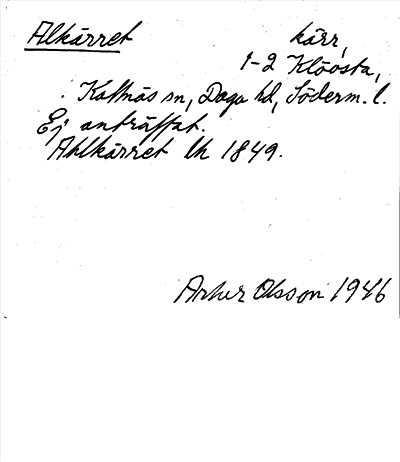 Alkärret kärr,
1-2 Klövsta,
Kattnäs sn, Daga hd, Söderm. l.
Ej anträffat.
Ahlkärret lh 1849.
Arthur Olsson 1946